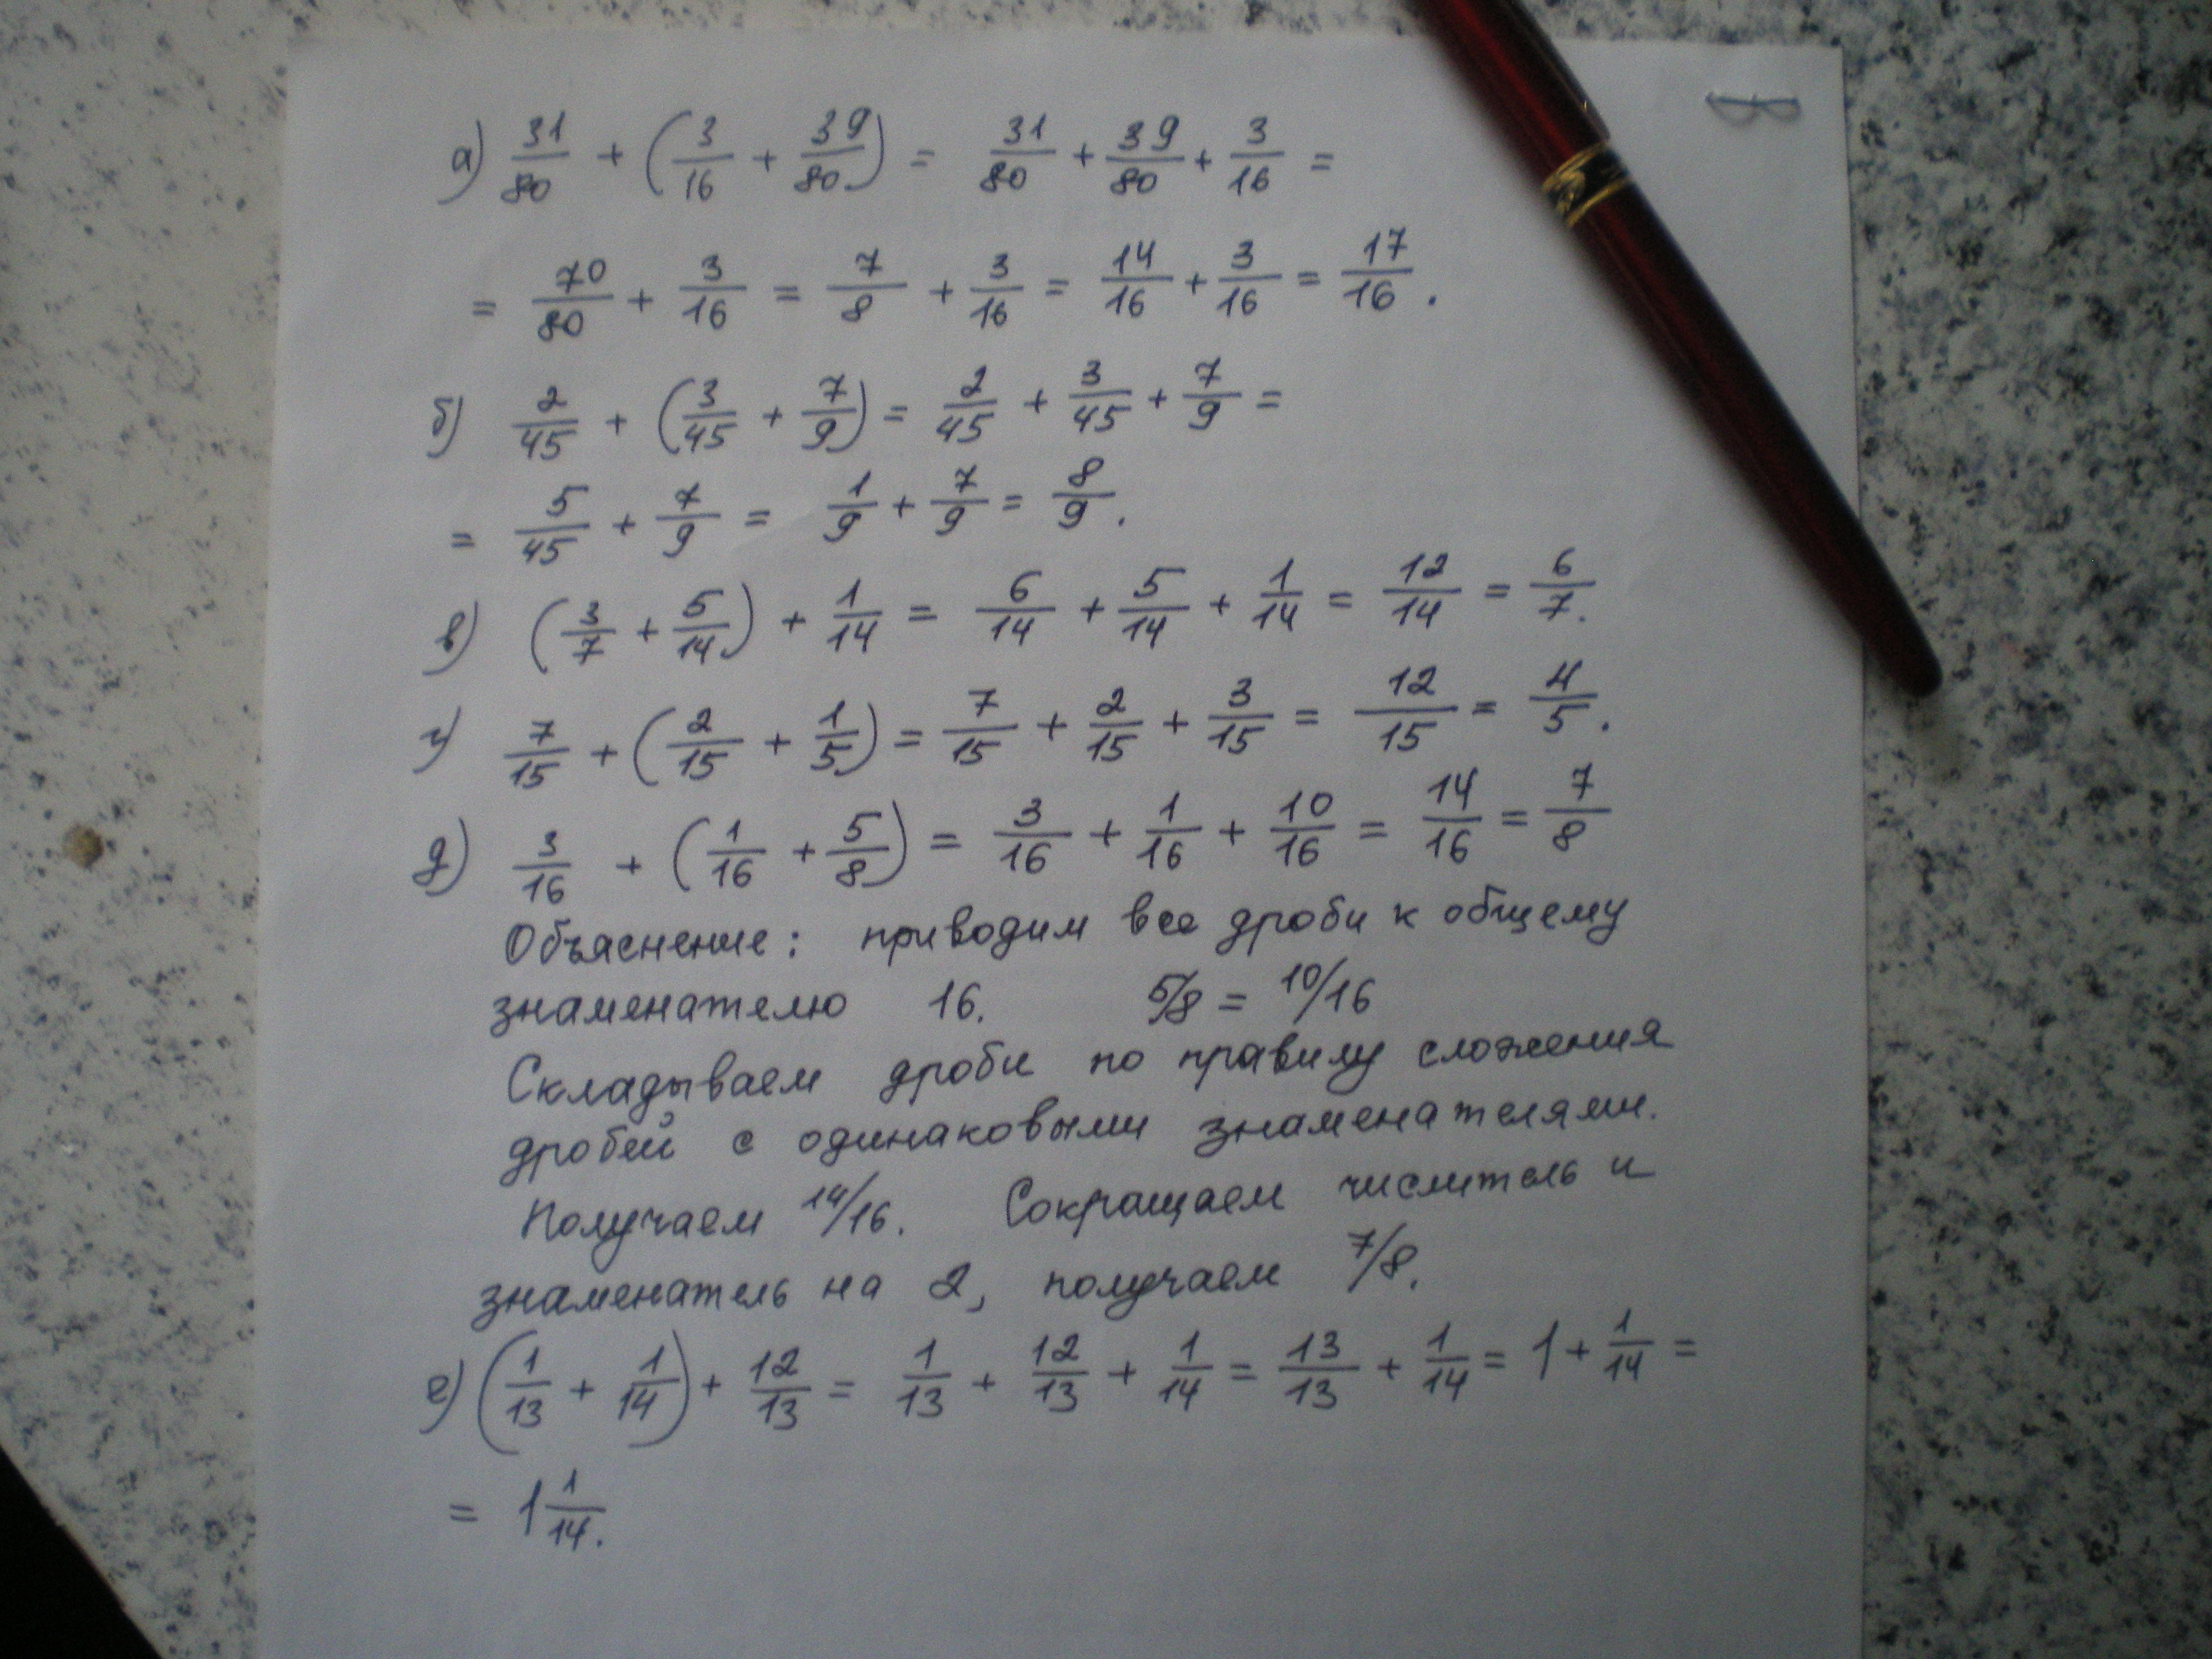 а) 31/80 + (3/16 + 39/80) = 31/80 + 39/80 + 3/16 =
= 70/80 + 3/16 = 7/8 + 3/16 = 14/16 + 3/16 = 17/16.
б) 2/45 + (3/45 + 7/9) = 2/45 + 3/45 + 7/9 =
= 5/45 + 7/9 = 1/9 + 7/9 = 8/9.
в) (3/7 + 5/14) + 1/14 = 6/14 + 5/14 + 1/14 = 12/14 = 6/7.
г) 7/15 + (2/15 + 1/5) = 7/15 + 2/15 + 3/15 = 12/15 = 4/5.
д) 3/16 + (1/16 + 5/8) = 3/16 + 1/16 + 10/16 = 14/16 = 7/8
Объяснение: приводим все дроби к общему
знаменателю 16. 5/8 = 10/16
Складываем дроби по правилу сложения
дробей с одинаковыми знаменателями.
Получаем 14/16. Сокращаем числитель и
знаменатель на 2, получаем 7/8.
е) (1/13 + 1/14) + 12/13 = 1/13 + 12/13 + 1/14 = 13/13 + 1/14 = 1 + 1/14 =
= 1 1/14.